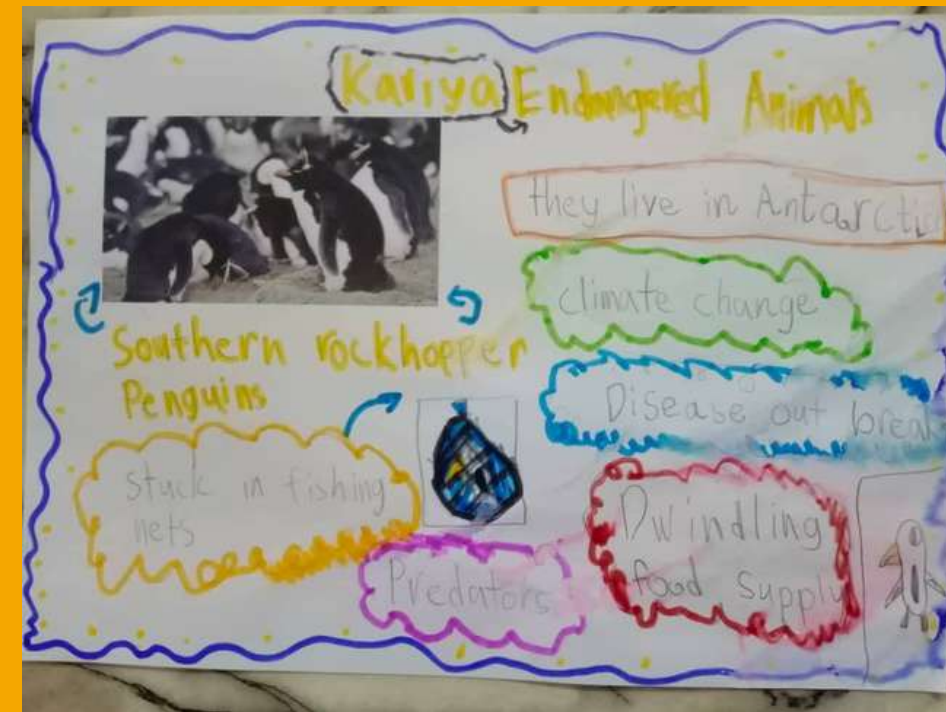 Kariya Endangered Animals
they live in Antarctic
climate change
Southern rockhopper
Penguins
Disease out break
Stuck in fishing
nets
Dwindling
food supply
Predators